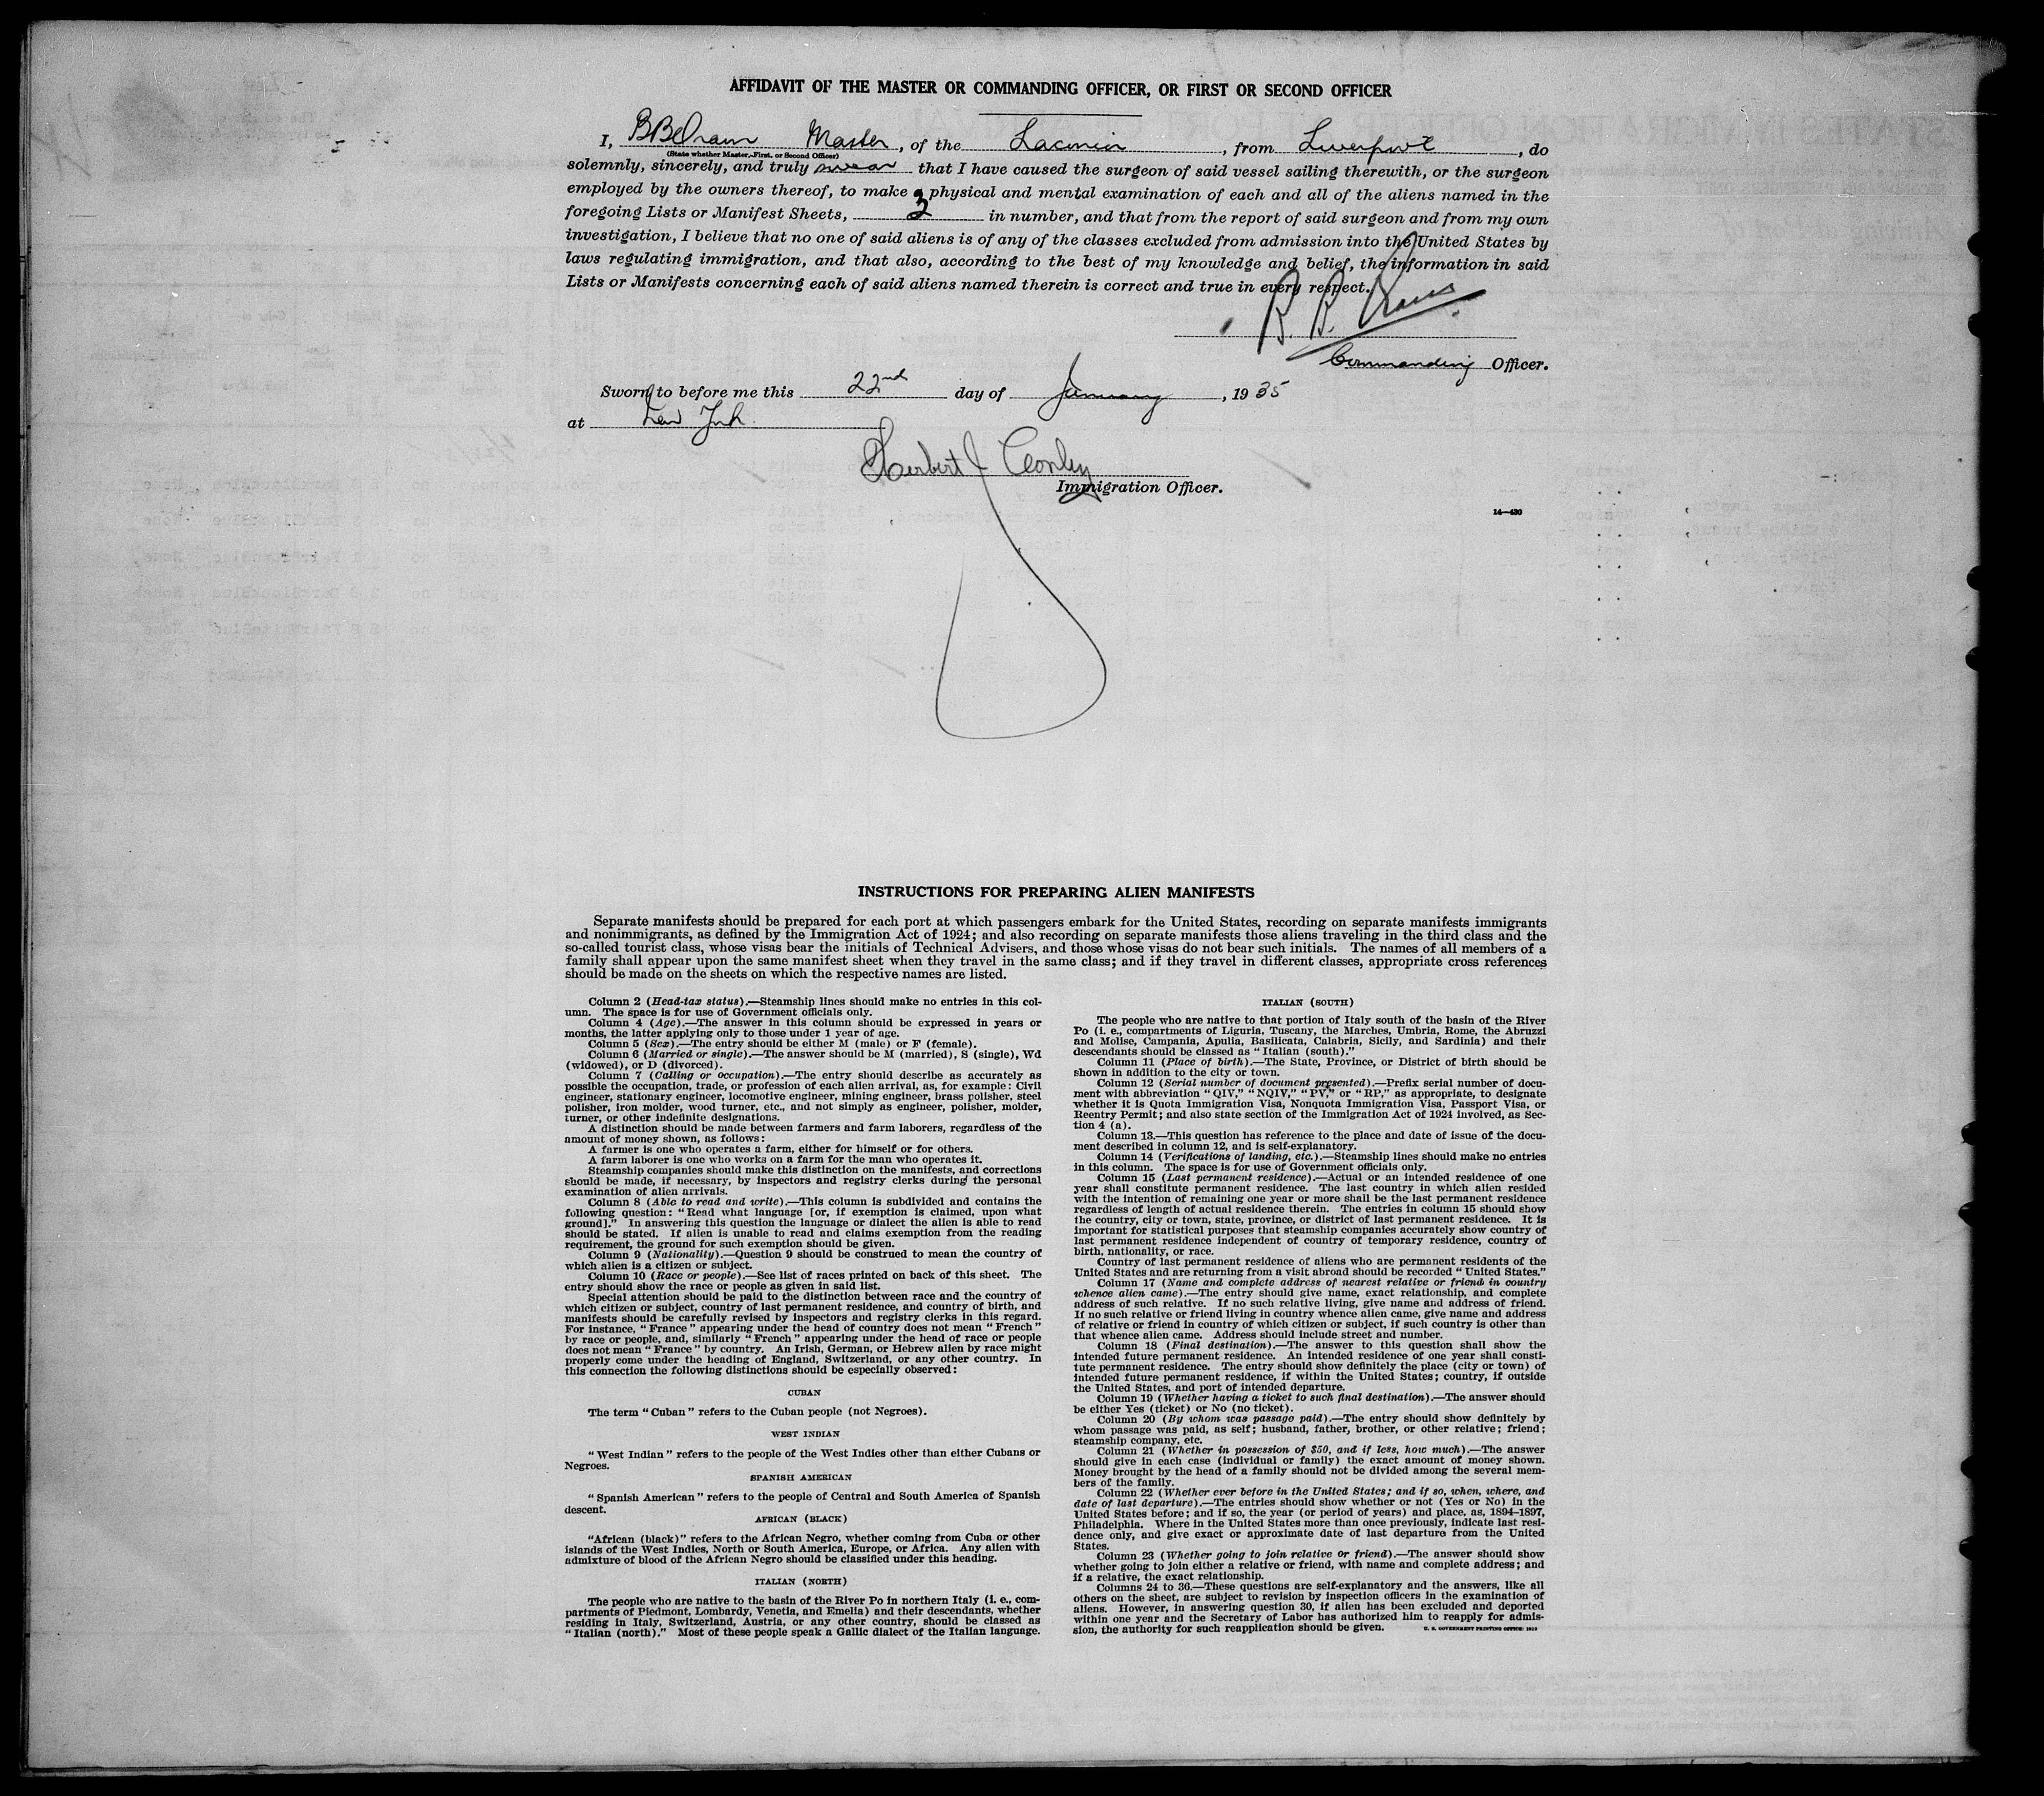 AFFIDAVIT OF THE MASTER OR COMMANDING OFFICER, OR FIRST OR SECOND OFFICER
I, Master, of the Laconia, from Liverpool, do
(State whether Master, First, or Second Officer)
solemnly, sincerely, and truly swear that I have caused the surgeon of said vessel sailing therewith, or the surgeon
employed by the owners thereof, to make a physical and mental examination of each and all of the aliens named in the
foregoing Lists or Manifest Sheets, 3 in number, and that from the report of said surgeon and from my own
investigation, I believe that no one of said aliens is of any of the classes excluded from admission into the United States by
laws regulating immigration, and that also, according to the best of my knowledge and belief, the information in said
Lists or Manifests concerning each of said aliens named therein is correct and true in every respect.
Commanding Officer.
Sworn to before me this 22nd day of January, 1935
at New York.
Herbert J Conley
Immigration Officer.
14—430
INSTRUCTIONS FOR PREPARING ALIEN MANIFESTS
Separate manifests should be prepared for each port at which passengers embark for the United States, recording on separate manifests immigrants
and nonimmigrants, as defined by the Immigration Act of 1924; and also recording on separate manifests those aliens traveling in the third class and the
so-called tourist class, whose visas bear the initials of Technical Advisers, and those whose visas do not bear such initials. The names of all members of a
family shall appear upon the same manifest sheet when they travel in the same class; and if they travel in different classes, appropriate cross references
should be made on the sheets on which the respective names are listed.
Column 2 (Head-tax status).—Steamship lines should make no entries in this col-
umn. The space is for use of Government officials only.
Column 4 (Age).—The answer in this column should be expressed in years or
months, the latter applying only to those under 1 year of age.
Column 5 (Sex).—The entry should be either M (male) or F (female).
Column 6 (Married or single).—The answer should be M (married), S (single), Wd
(widowed), or D (divorced).
Column 7 (Calling or occupation).—The entry should describe as accurately as
possible the occupation, trade, or profession of each alien arrival, as, for example: Civil
engineer, stationary engineer, locomotive engineer, mining engineer, brass polisher, steel
polisher, iron molder, wood turner, etc., and not simply as engineer, polisher, molder,
turner, or other indefinite designations.
A distinction should be made between farmers and farm laborers, regardless of the
amount of money shown, as follows:
A farmer is one who operates a farm, either for himself or for others.
A farm laborer is one who works on a farm for the man who operates it.
Steamship companies should make this distinction on the manifests, and corrections
should be made, if necessary, by inspectors and registry clerks during the personal
examination of alien arrivals.
Column 8 (Able to read and write).—This column is subdivided and contains the
following question: "Read what language [or, if exemption is claimed, upon what
ground]." In answering this question the language or dialect the alien is able to read
should be stated. If alien is unable to read and claims exemption from the reading
requirement, the ground for such exemption should be given.
Column 9 (Nationality).—Question 9 should be construed to mean the country of
which alien is a citizen or subject.
Column 10 (Race or people).—See list of races printed on back of this sheet. The
entry should show the race or people as given in said list.
Special attention should be paid to the distinction between race and the country of
which citizen or subject, country of last permanent residence, and country of birth, and
manifests should be carefully revised by inspectors and registry clerks in this regard.
For instance, "France" appearing under the head of country does not mean "French"
by race or people, and, similarly "French" appearing under the head of race or people
does not mean "France" by country. An Irish, German, or Hebrew alien by race might
properly come under the heading of England, Switzerland, or any other country. In
this connection the following distinctions should be especially observed:
CUBAN
The term "Cuban" refers to the Cuban people (not Negroes).
WEST INDIAN
"West Indian" refers to the people of the West Indies other than either Cubans or
Negroes.
SPANISH AMERICAN
"Spanish American" refers to the people of Central and South America of Spanish
descent.
AFRICAN (BLACK)
"African (black)" refers to the African Negro, whether coming from Cuba or other
islands of the West Indies, North or South America, Europe, or Africa. Any alien with
admixture of blood of the African Negro should be classified under this heading.
ITALIAN (NORTH)
The people who are native to the basin of the River Po in northern Italy (i. e., com-
partments of Piedmont, Lombardy, Venetia, and Emelia) and their descendants, whether
residing in Italy, Switzerland, Austria, or any other country, should be classed as
"Italian (north)." Most of these people speak a Gallic dialect of the Italian language.
ITALIAN (SOUTH)
The people who are native to that portion of Italy south of the basin of the River
Po (i. e., compartments of Liguria, Tuscany, the Marches, Umbria, Rome, the Abruzzi
and Molise, Campania, Apulia, Basilicata, Calabria, Sicily, and Sardinia) and their
descendants should be classed as "Italian (south)."
Column 11 (Place of birth).—The State, Province, or District of birth should be
shown in addition to the city or town.
Column 12 (Serial number of document presented).—Prefix serial number of docu-
ment with abbreviation "QIV," "NQIV," "PV," or "RP," as appropriate, to designate
whether it is Quota Immigration Visa, Nonquota Immigration Visa, Passport Visa, or
Reentry Permit; and also state section of the Immigration Act of 1924 involved, as Sec-
tion 4 (a).
Column 13.—This question has reference to the place and date of issue of the docu-
ment described in column 12, and is self-explanatory.
Column 14 (Verifications of landing, etc.).—Steamship lines should make no entries
in this column. The space is for use of Government officials only.
Column 15 (Last permanent residence).—Actual or an intended residence of one
year shall constitute permanent residence. The last country in which alien resided
with the intention of remaining one year or more shall be the last permanent residence
regardless of length of actual residence therein. The entries in column 15 should show
the country, city or town, state, province, or district of last permanent residence. It is
important for statistical purposes that steamship companies accurately show country of
last permanent residence independent of country of temporary residence, country of
birth, nationality, or race.
Country of last permanent residence of aliens who are permanent residents of the
United States and are returning from a visit abroad should be recorded "United States."
Column 17 (Name and complete address of nearest relative or friend in country
whence alien came).—The entry should give name, exact relationship, and complete
address of such relative. If no such relative living, give name and address of friend.
If no such relative or friend living in country whence alien came, give name and address
of relative or friend in country of which citizen or subject, if such country is other than
that whence alien came. Address should include street and number.
Column 18 (Final destination).—The answer to this question shall show the
intended future permanent residence. An intended residence of one year shall consti-
tute permanent residence. The entry should show definitely the place (city or town) of
intended future permanent residence, if within the United States; country, if outside
the United States, and port of intended departure.
Column 19 (Whether having a ticket to such final destination).—The answer should
be either Yes (ticket) or No (no ticket).
Column 20 (By whom was passage paid).—The entry should show definitely by
whom passage was paid, as self; husband, father, brother, or other relative; friend;
steamship company, etc.
Column 21 (Whether in possession of $50, and if less, how much).—The answer
should give in each case (individual or family) the exact amount of money shown.
Money brought by the head of a family should not be divided among the several mem-
bers of the family.
Column 22 (Whether ever before in the United States; and if so, when, where, and
date of last departure).—The entries should show whether or not (Yes or No) in the
United States before; and if so, the year (or period of years) and place, as, 1894–1897,
Philadelphia. Where in the United States more than once previously, indicate last resi-
dence only, and give exact or approximate date of last departure from the United
States.
Column 23 (Whether going to join relative or friend).—The answer should show
whether going to join either a relative or friend, with name and complete address; and
if a relative, the exact relationship.
Columns 24 to 36.—These questions are self-explanatory and the answers, like all
others on the sheet, are subject to revision by inspection officers in the examination of
aliens. However, in answering question 30, if alien has been excluded and deported
within one year and the Secretary of Labor has authorized him to reapply for admis-
sion, the authority for such reapplication should be given.
U. S. GOVERNMENT PRINTING OFFICE: